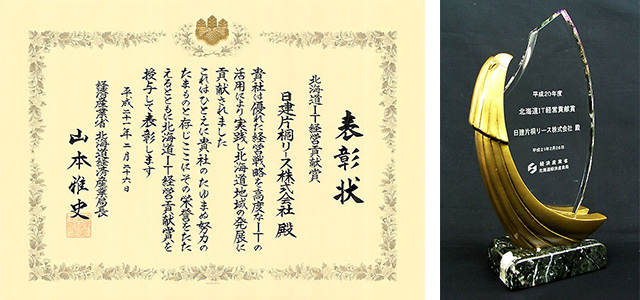 表彰状
北海道IT経営貢献賞
日建片桐リース株式会社 殿
貴社は優れた経営戦略を高度なITの
活用により実践し北海道地域の発展に
貢献されました
これはひとえに貴社のたゆまぬ努力の
たまものと存じここにその栄誉をたた
えるとともに北海道IT経営貢献賞を
授与して表彰します
平成二十一年二月二十六日
経済産業省 北海道経済産業局長
山本雅史
平成20年度
北海道IT経営貢献賞
日建片桐リース株式会社 殿
平成21年2月26日
経済産業省
北海道経済産業局